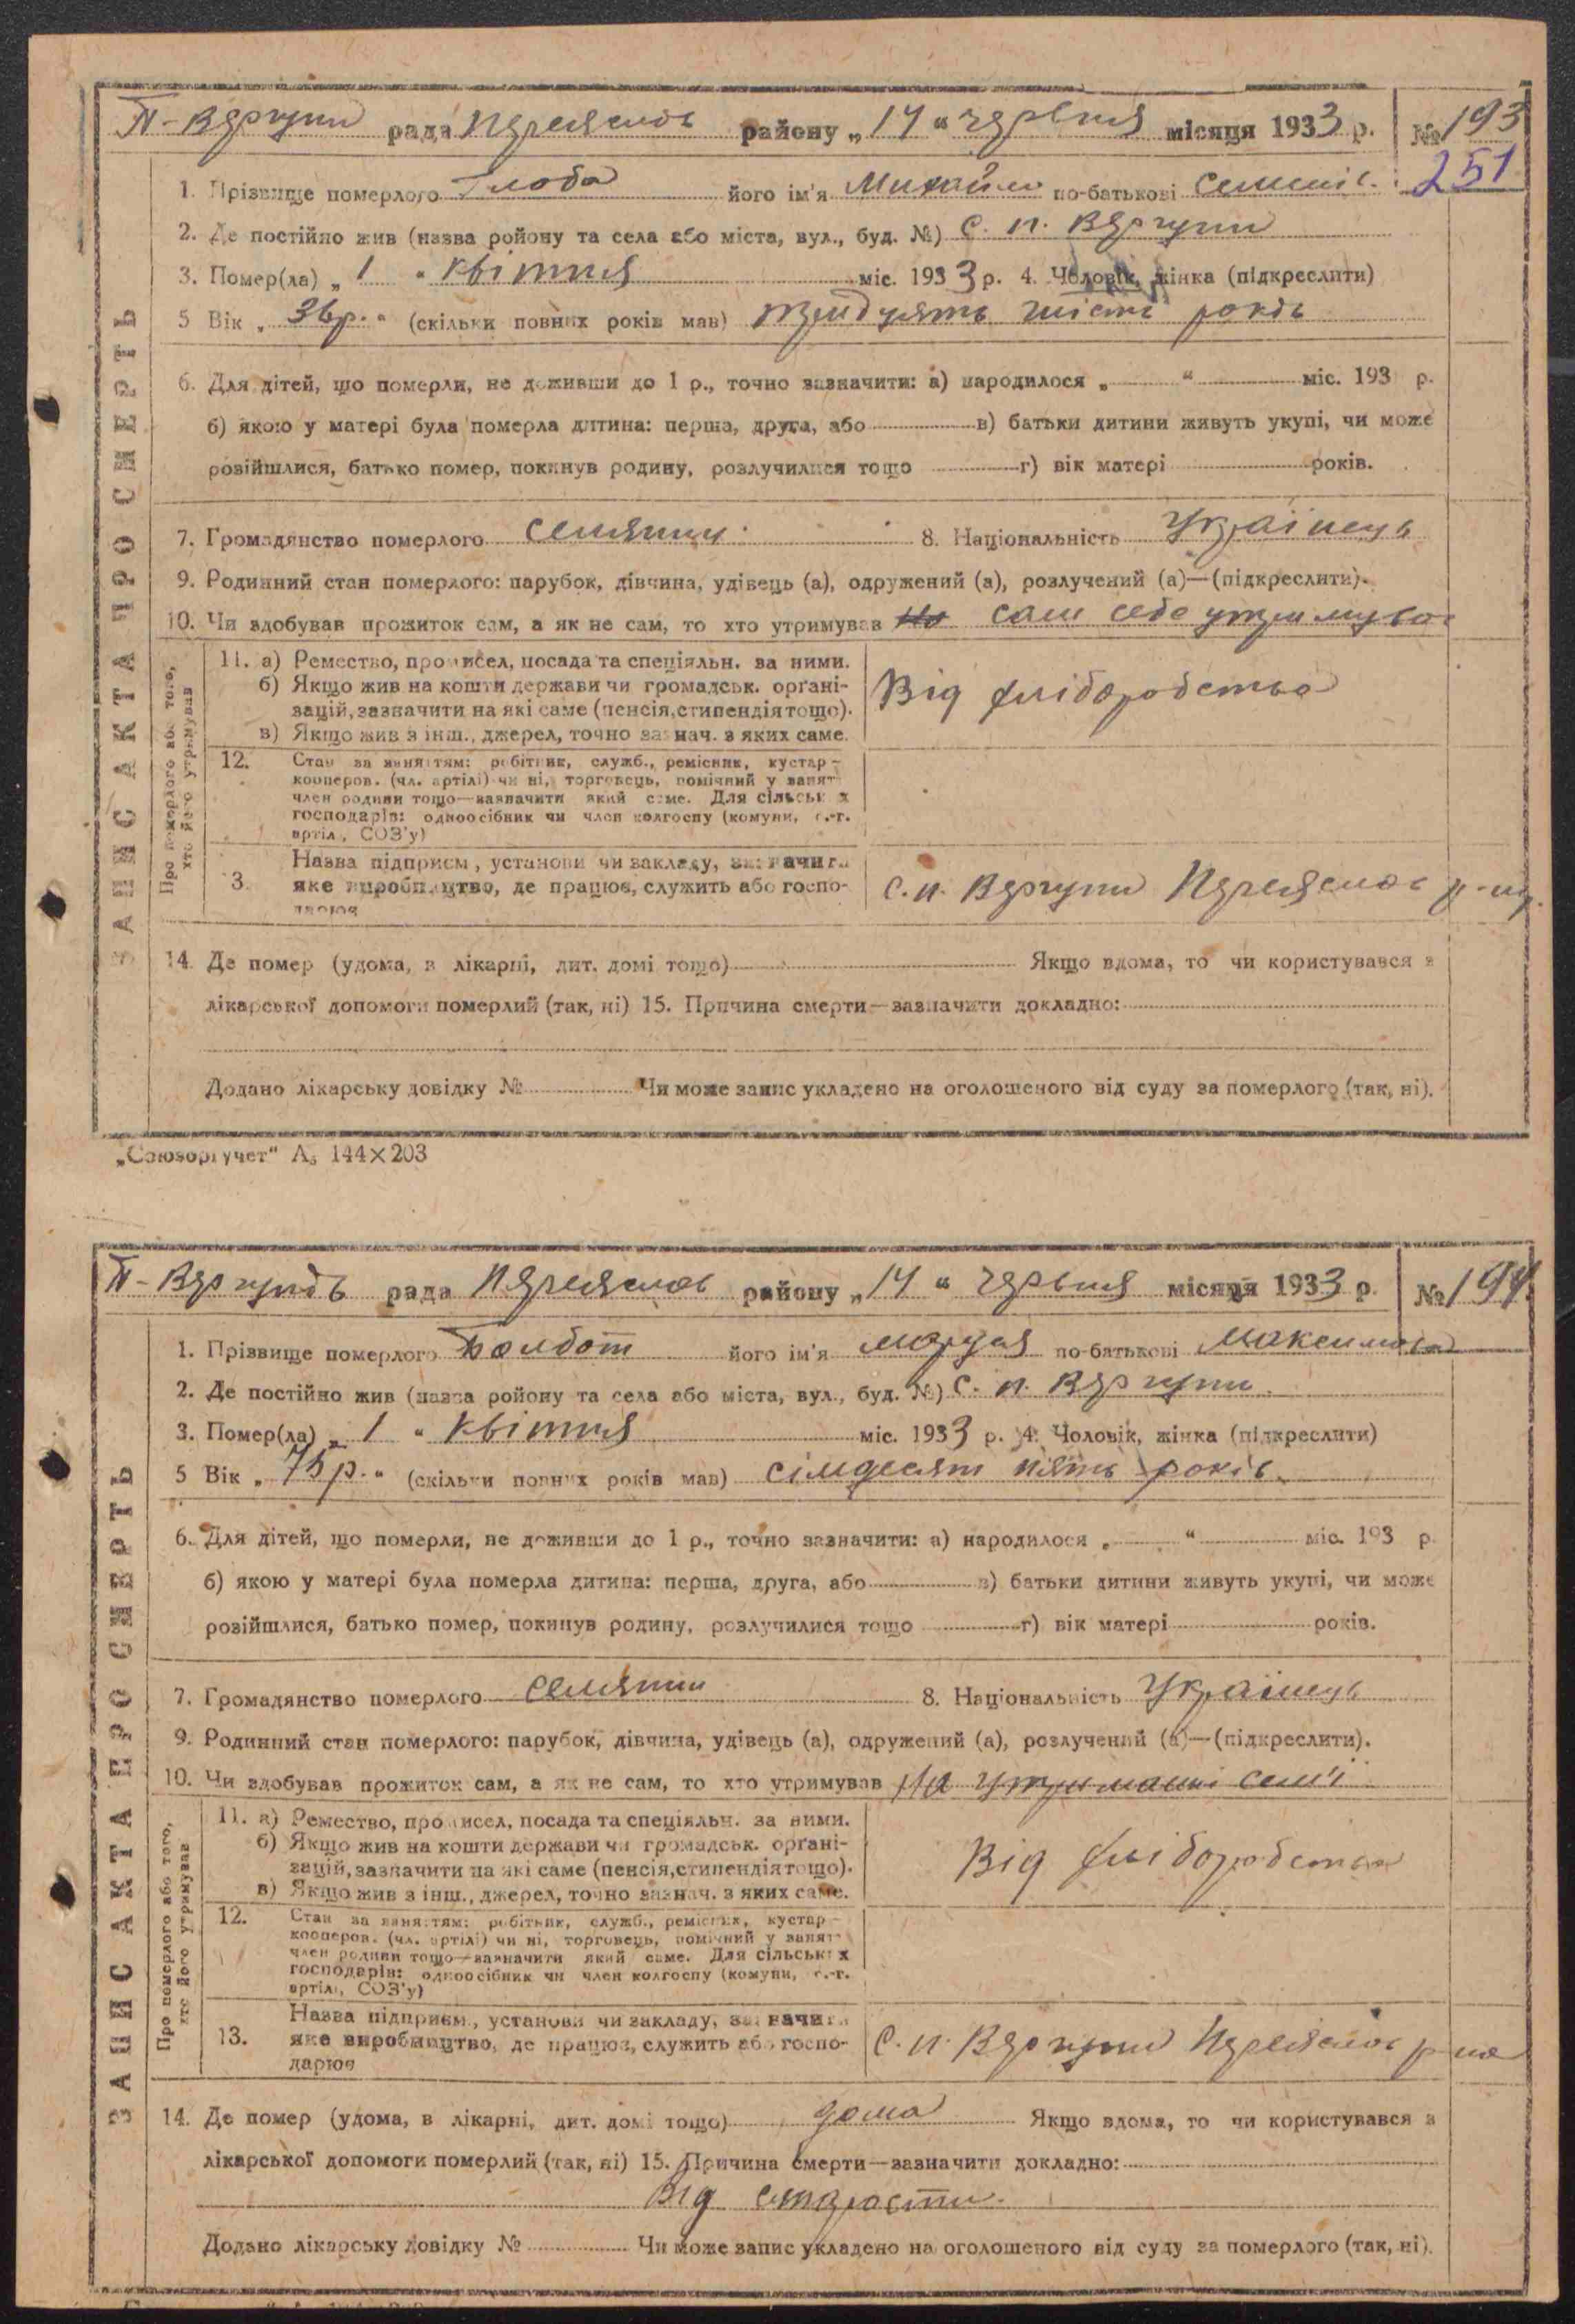 П-Вергуни рада Переяслов району „14“ червня місяця 1933 р. № 193
251
1. Прізвище померлого Глоба його ім'я Михайло по-батькові Семенів.
2. Де постійно жив (назва ройону та села або міста, вул., буд. №) С. п. Вергуни
3. Помер(ла) „1“ квітня міс. 1933 р. 4. Чоловік, жінка (підкреслити)
5 Вік „36р.“ (скільки повних років мав) тридцять шість років
6. Для дітей, що померли, не доживши до 1 р., точно зазначити: а) народилося „ “ міс. 193 р.
б) якою у матері була померла дитина: перша, друга, або в) батьки дитини живуть укупі, чи може
розійшлися, батько помер, покинув родину, розлучилися тощо г) вік матері років.
7. Громадянство померлого селянин 8. Національність Українець
9. Родинний стан померлого: парубок, дівчина, удівець (а), одружений (а), розлучений (а)—(підкреслити).
10. Чи здобував прожиток сам, а як не сам, то хто утримував сам себе утримував
ЗАПИС АКТА ПРО СМЕРТЬ
Про померлого або того, хто його утримував
11. а) Ремество, промисел, посада та спеціяльн. за ними.
б) Якщо жив на кошти держави чи громадськ. органі-
зацій, зазначити на які саме (пенсія, стипендія тощо).
в) Якщо жив з інш., джерел, точно зазнач. з яких саме.
Від хліборобства
12. Стан за заняттям: робітник, служб., ремісник, кустар-
кооперов. (чл. артілі) чи ні, торговець, помічний у занят.
член родини тощо—зазначити який саме. Для сільських
господарів: одноосібник чи член колгоспу (комуни, с.-г.
артіл., СОЗ'у)
13. Назва підприєм., установи чи закладу, зазначити
яке виробництво, де працює, служить або госпо-
дарює
С. п. Вергуни Переяслов р-ну.
14. Де помер (удома, в лікарні, дит. домі тощо) Якщо вдома, то чи користувався з
лікарської допомоги померлий (так, ні) 15. Причина смерти—зазначити докладно:
Додано лікарську довідку № Чи може запис укладено на оголошеного від суду за померлого (так, ні).
„Союзоргучет“ А₅ 144×203
П-Вергунів рада Переяслов району „14“ червня місяця 1933 р. № 194
1. Прізвище померлого Болбот його ім'я по-батькові Максимова
2. Де постійно жив (назва ройону та села або міста, вул., буд. №) С. п. Вергуни
3. Помер(ла) „1“ квітня міс. 1933 р. 4. Чоловік, жінка (підкреслити)
5 Вік „75р.“ (скільки повних років мав) сімдесят пять років
6. Для дітей, що померли, не доживши до 1 р., точно зазначити: а) народилося „ “ міс. 193 р.
б) якою у матері була померла дитина: перша, друга, або в) батьки дитини живуть укупі, чи може
розійшлися, батько помер, покинув родину, розлучилися тощо г) вік матері років.
7. Громадянство померлого селянин 8. Національність Українець
9. Родинний стан померлого: парубок, дівчина, удівець (а), одружений (а), розлучений (а)—(підкреслити).
10. Чи здобував прожиток сам, а як не сам, то хто утримував На утриманні сем'ї
ЗАПИС АКТА ПРО СМЕРТЬ
Про померлого або того, хто його утримував
11. а) Ремество, промисел, посада та спеціяльн. за ними.
б) Якщо жив на кошти держави чи громадськ. органі-
зацій, зазначити на які саме (пенсія, стипендія тощо).
в) Якщо жив з інш., джерел, точно зазнач. з яких саме.
Від хліборобства
12. Стан за заняттям: робітник, служб., ремісник, кустар-
кооперов. (чл. артілі) чи ні, торговець, помічний у занят.
член родини тощо—зазначити який саме. Для сільських
господарів: одноосібник чи член колгоспу (комуни, с.-г.
артіл., СОЗ'у)
13. Назва підприєм., установи чи закладу, зазначити
яке виробництво, де працює, служить або госпо-
дарює
С. п. Вергуни Переяслов р-на
14. Де помер (удома, в лікарні, дит. домі тощо) дома Якщо вдома, то чи користувався з
лікарської допомоги померлий (так, ні) 15. Причина смерти—зазначити докладно:
Від старости.
Додано лікарську довідку № Чи може запис укладено на оголошеного від суду за померлого (так, ні).